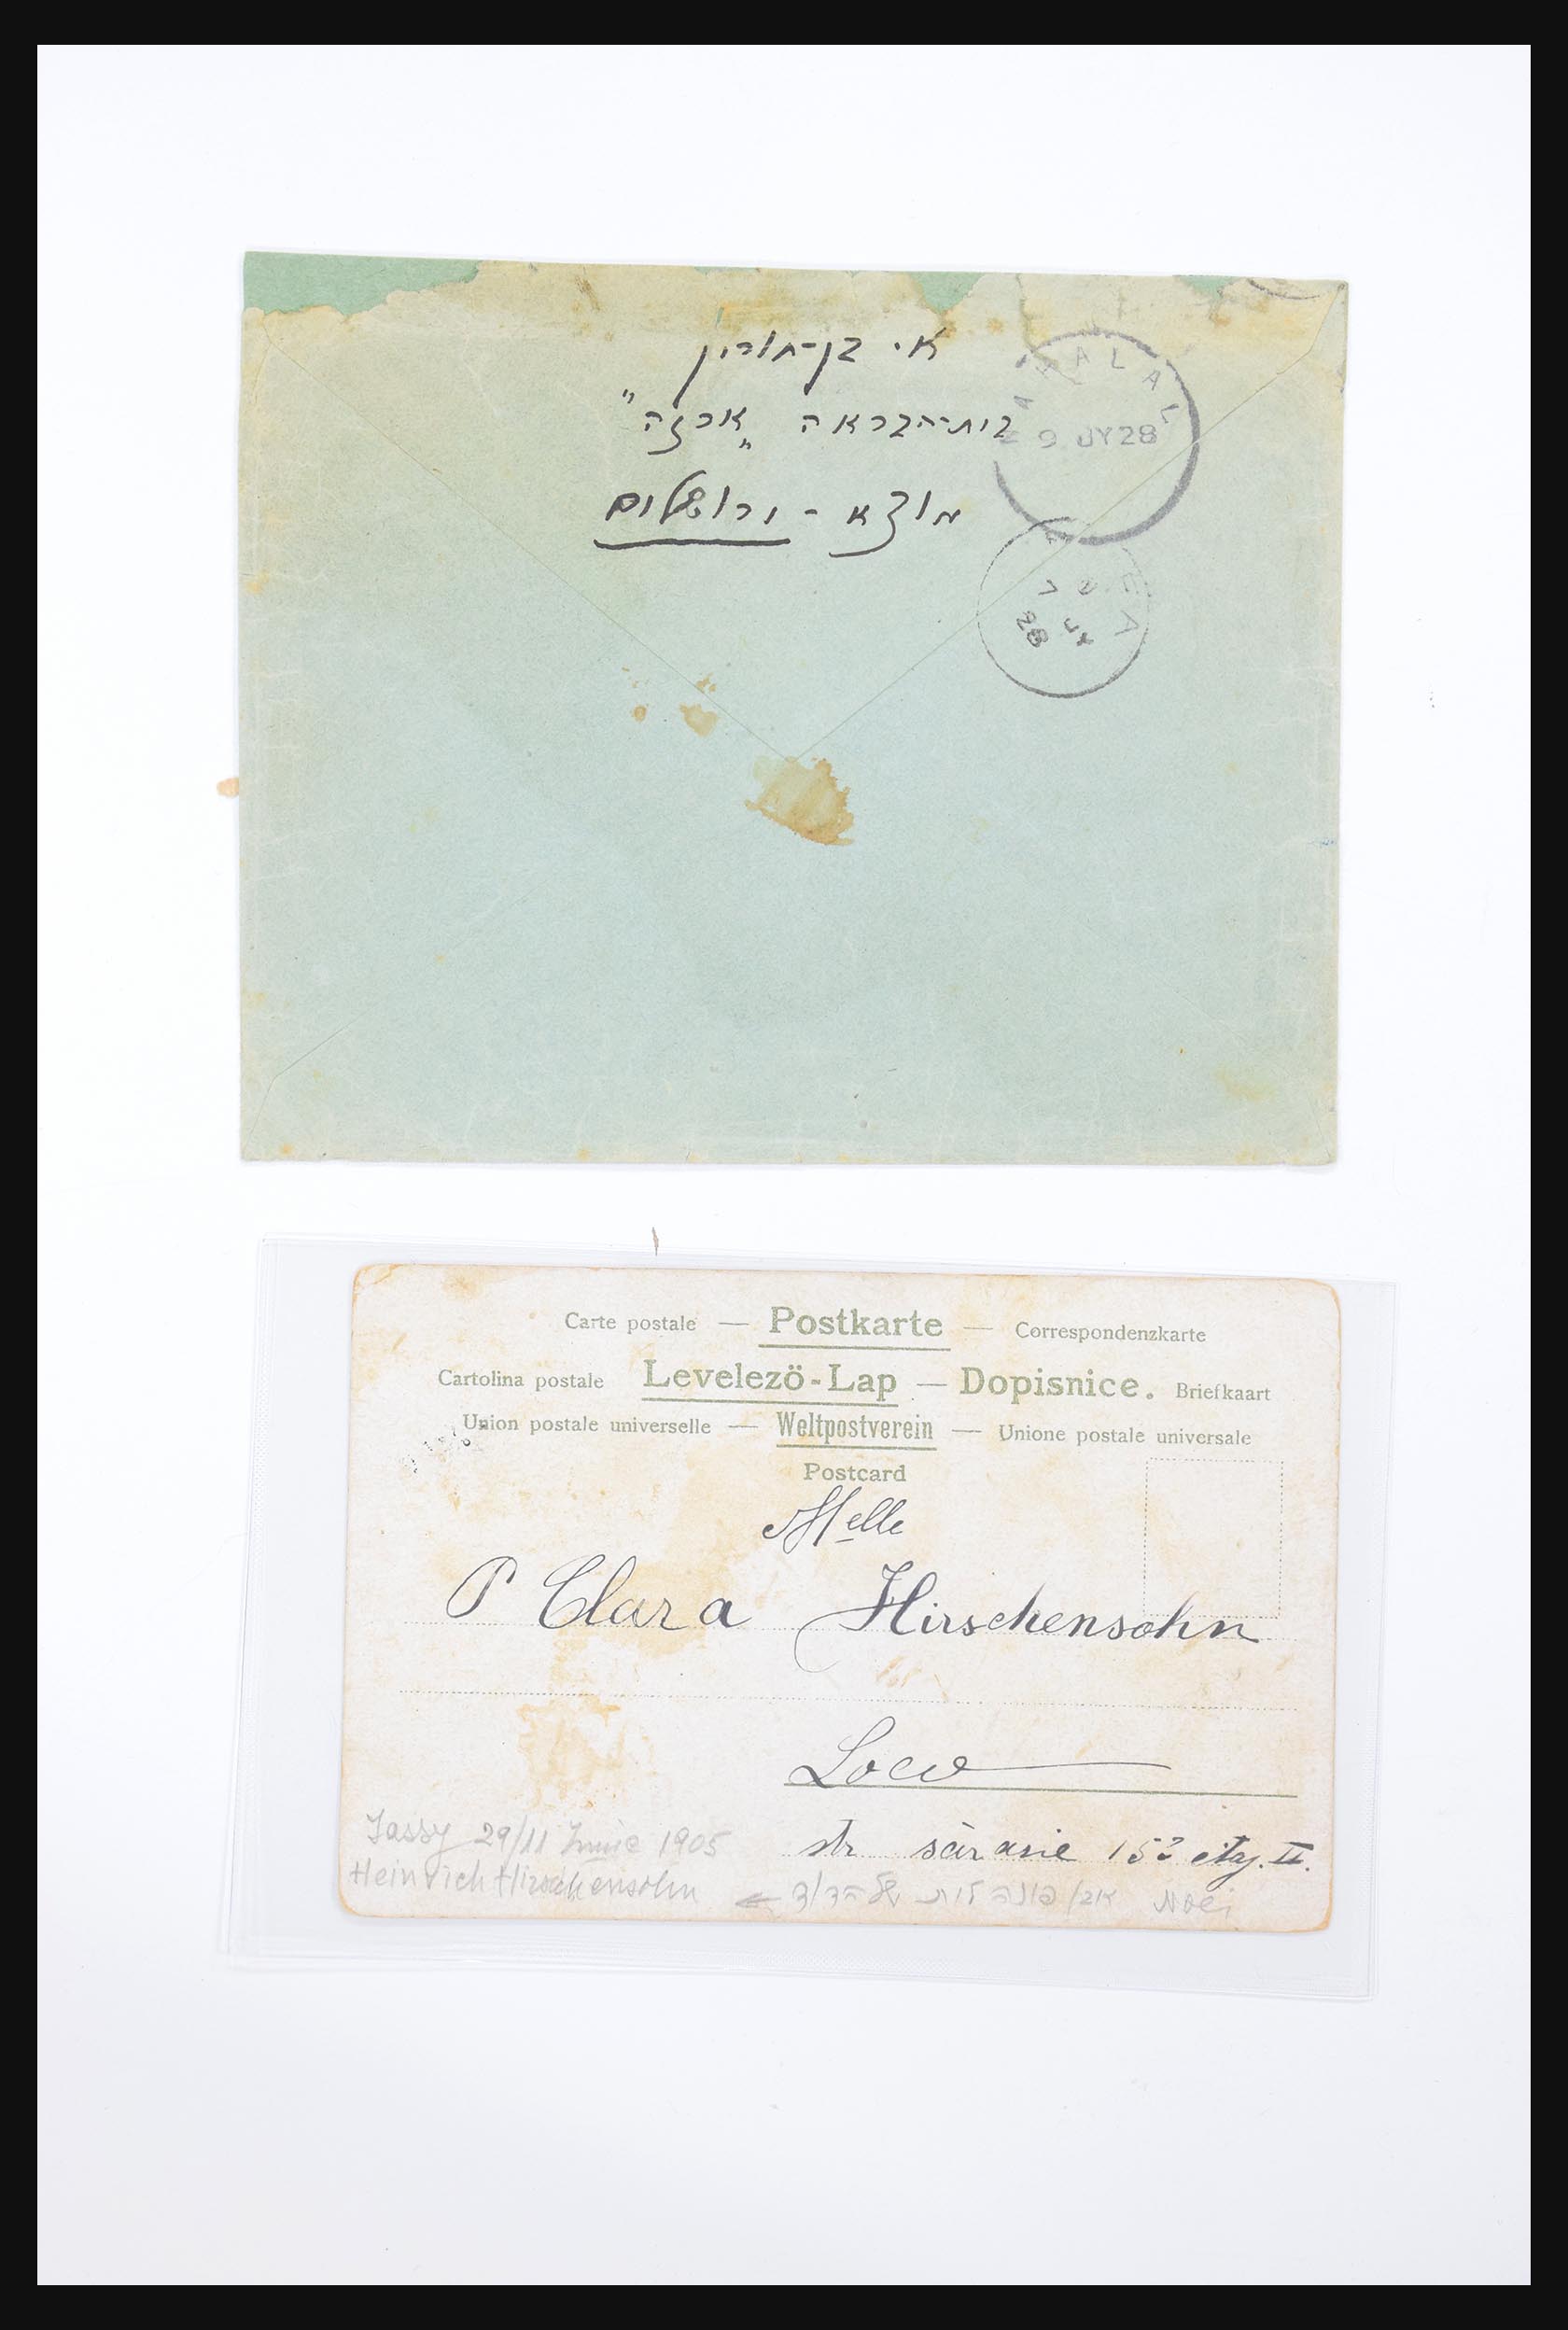 א. בן-חורין
בית-הבראה "ארזה"
מוצא - ירושלים
NAHALAL
9 JY 28
28 JY
Carte postale — Postkarte — Correspondenzkarte
Cartolina postale Levelezö-Lap — Dopisnice. Briefkaart
Union postale universelle — Weltpostverein — Unione postale universale
Postcard
Melle
Clara Hirschensohn
Loco
str sărarie etaj. II.
Jassy 29/11 Iunie 1905
Heinrich Hirschensohn